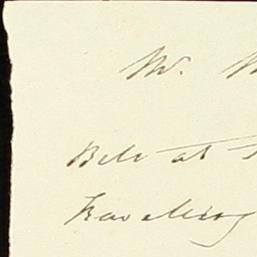 Mr.
Bill at
Traveling